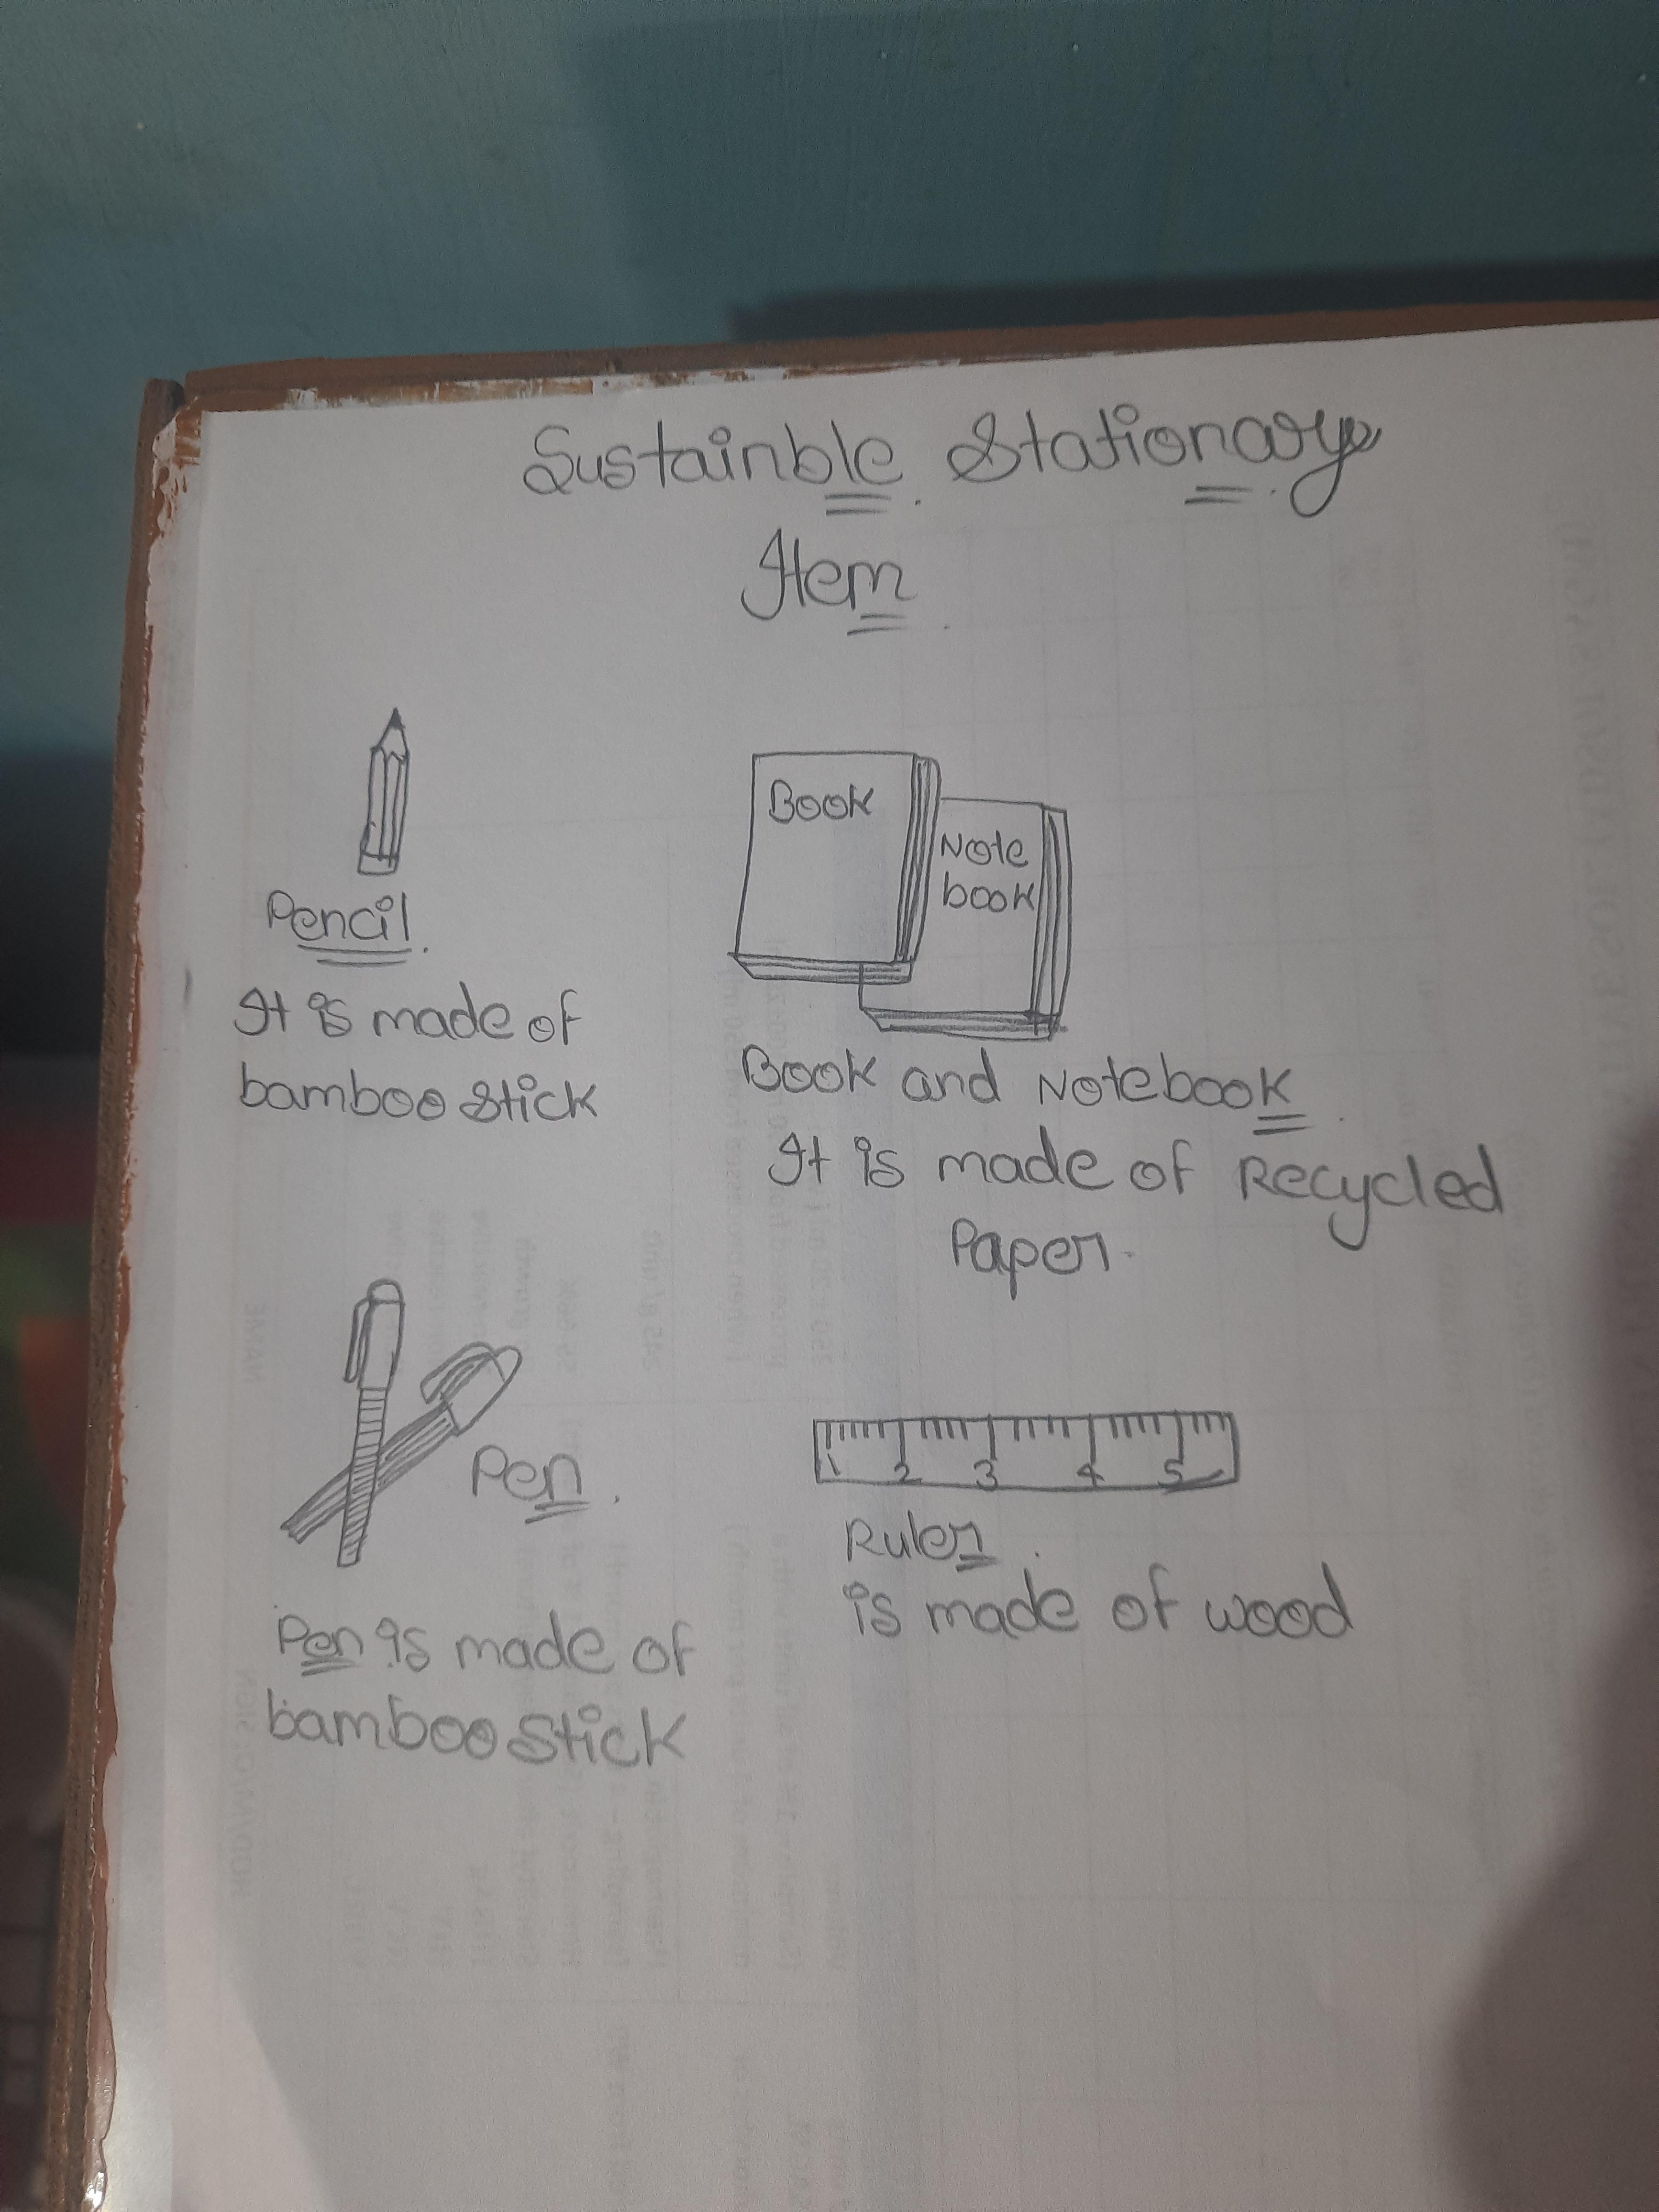 Sustainble Stationary
Item
Pencil.
It is made of
bamboo stick
Book
Note
book
Book and Notebook.
It is made of Recycled
Paper.
Pen.
Pen is made of
bamboo stick
1 2 3 4 5
Ruler.
is made of wood